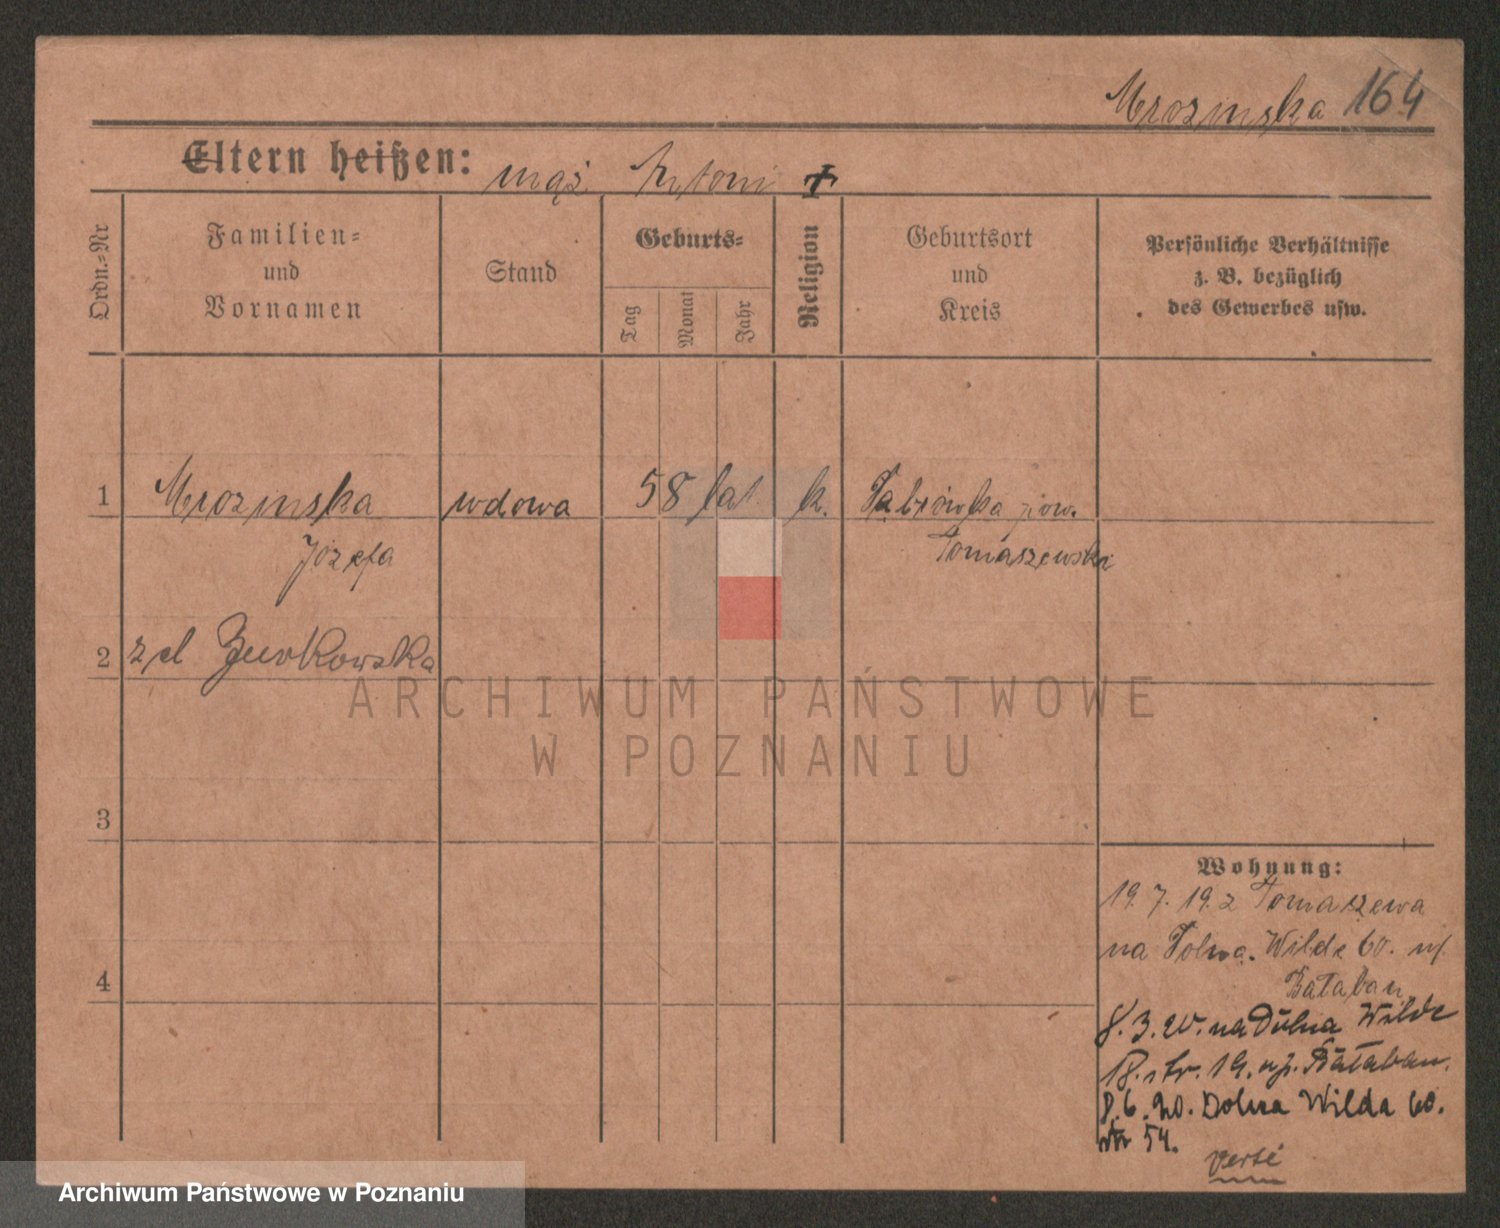 Mrozinska 164
Eltern heißen: mąż Antoni +
Ordn.-Nr
Familien-
und
Vornamen
Stand
Geburts-
Tag
Monat
Jahr
Religion
Geburtsort
und
Kreis
Persönliche Verhältnisse
z. B. bezüglich
des Gewerbes usw.
1 Mrozinska wdowa 58 lat k. pow.
Józefa Tomaszewski
2 z d
3
4
Wohnung:
19. 7. 19. z Tomaszewa
na Dolna. Wilda 60.
Bataban
8. 3. 20. na Dolna Wilde
18. str. 19. Bataban.
8. 6. 20. Dolna Wilda 60.
str 54.
verte
ARCHIWUM PAŃSTWOWE
W POZNANIU
Archiwum Państwowe w Poznaniu